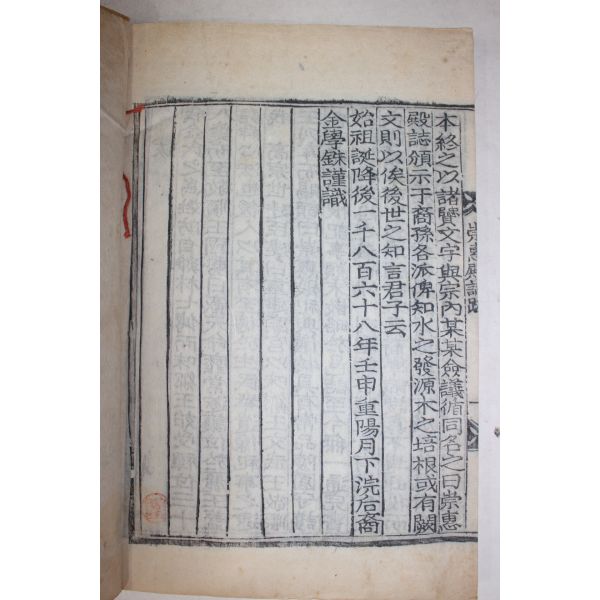 崇惠殿誌跋
本終之以諸贒文字與宗內某某僉議循同名之曰崇惠
殿誌頒示于裔孫各派俾知水之發源木之培根或有闕
文則以俟後世之知言君子云
始祖誕降後一千八百六十八年壬申重陽月下浣后裔
金學銖謹識